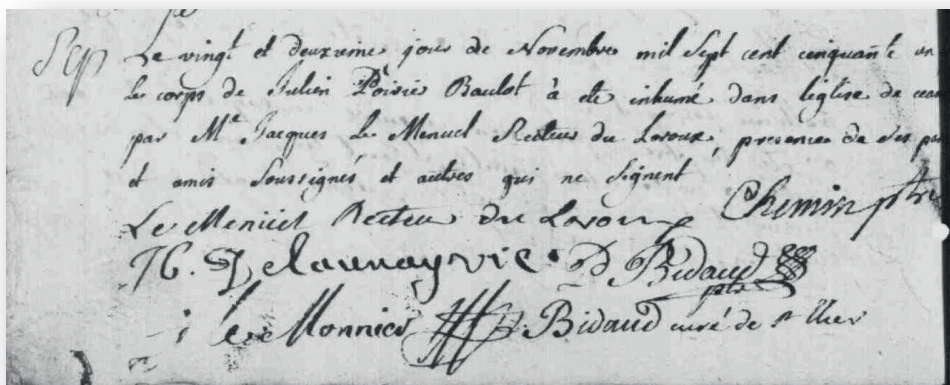 Sep Le vingt et deuxieme jour de Novembre mil Sept cent cinquante un
le corps de Julien Poirié Baulot à eté inhumé dans léglise de ceans
par Me Jacques Le Menuel Recteur du Loroux, presence de Ses
et amis Soussignés et autres qui ne Signent
Le Menuel Recteur du Loroux Chemin ptre
Delaunay vic D Bidaud
ptre
le Monnier Bidaud curé de st